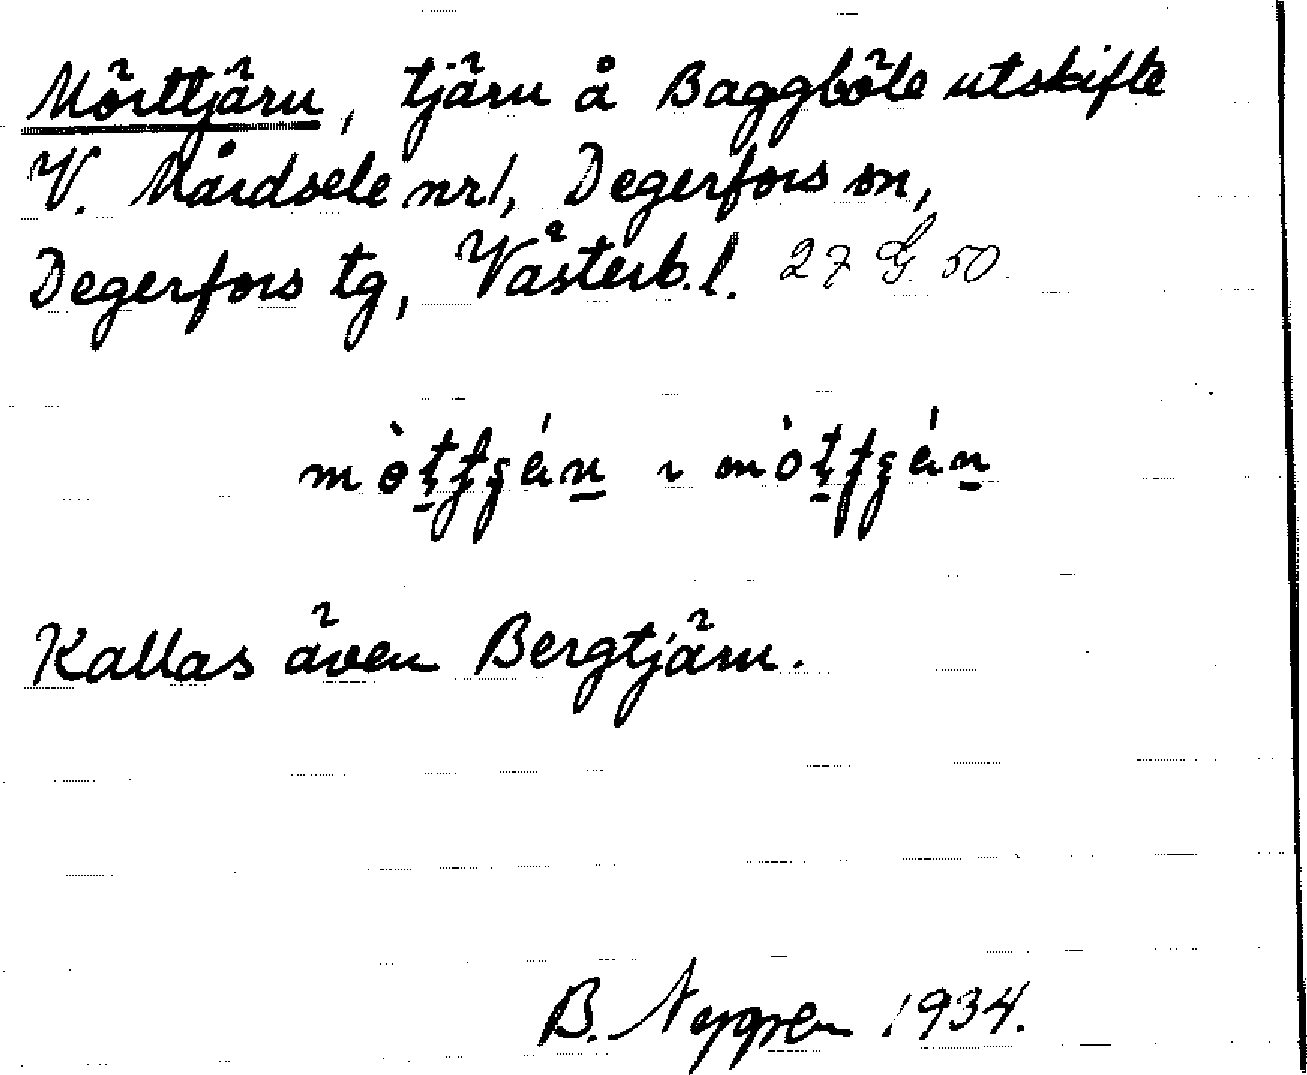 Mörttjärn, tjärn å Baggböle utskifte
V. Mårdsele nr 1, Degerfors sn,
Degerfors tg, Västerb. l. 27 G 50.
Kallas även Bergtjärn.
B. Nygren 1934.